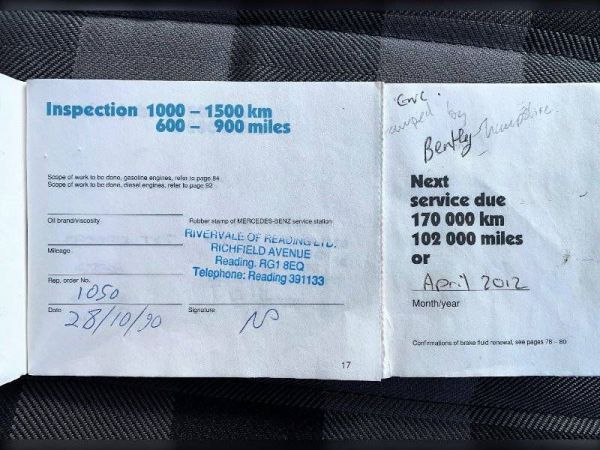 Inspection 1000 – 1500 km
600 – 900 miles
Scope of work to be done, gasoline engines, refer to page 84
Scope of work to be done, diesel engines, refer to page 92
Oil brand/viscosity
Rubber stamp of MERCEDES-BENZ service station
RIVERVALE OF READING LTD.
RICHFIELD AVENUE
Reading. RG1 8EQ
Telephone: Reading 391133
Mileage
Rep. order No.
1050
Date
28/10/90
Signature
17
by
Bently
Next
service due
170 000 km
102 000 miles
or
April 2012
Month/year
Confirmations of brake fluid renewal, see pages 78 – 80